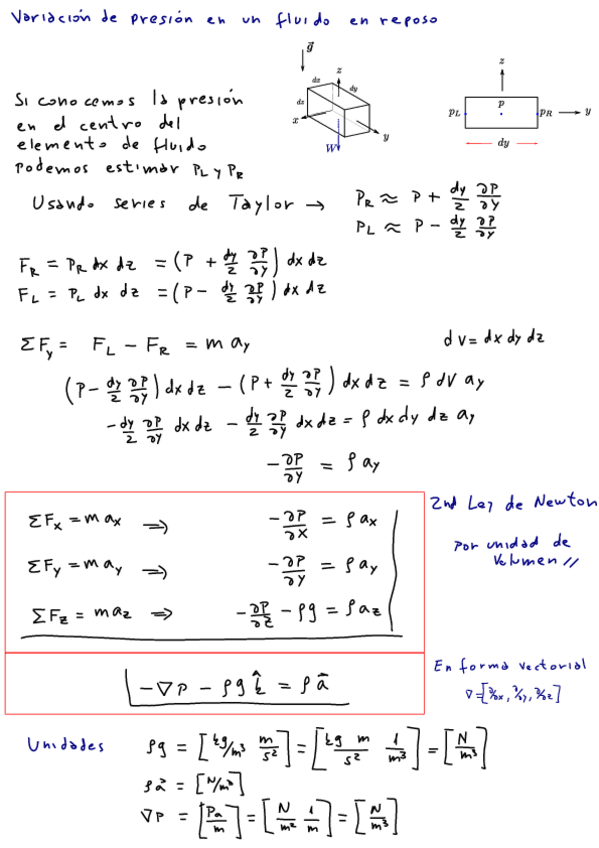 Variación de presión en un fluido en reposo
g⃗
dx dy dz z x y W
z pL p pR y dy
Si conocemos la presión
en el centro del
elemento de fluido
podemos estimar PL y PR
Usando series de Taylor → PR ≈ P + dy/2 ∂P/∂y
PL ≈ P - dy/2 ∂P/∂y
FR = PR dx dz = (P + dy/2 ∂P/∂y) dx dz
FL = PL dx dz = (P - dy/2 ∂P/∂y) dx dz
ΣFy = FL - FR = m ay dV = dx dy dz
(P - dy/2 ∂P/∂y) dx dz - (P + dy/2 ∂P/∂y) dx dz = ρ dV ay
- dy/2 ∂P/∂y dx dz - dy/2 ∂P/∂y dx dz = ρ dx dy dz ay
- ∂P/∂y = ρ ay
ΣFx = m ax ⇒ - ∂P/∂x = ρ ax
ΣFy = m ay ⇒ - ∂P/∂y = ρ ay
ΣFz = m az ⇒ - ∂P/∂z - ρg = ρ az
2nd Ley de Newton
por unidad de
Volumen //
-∇P - ρg k̂ = ρ a⃗
En forma vectorial
∇=[∂/∂x, ∂/∂y, ∂/∂z]
Unidades ρg = [kg/m³ m/s²] = [kg m/s² 1/m³] = [N/m³]
ρa⃗ = [N/m³]
∇P = [Pa/m] = [N/m² 1/m] = [N/m³]